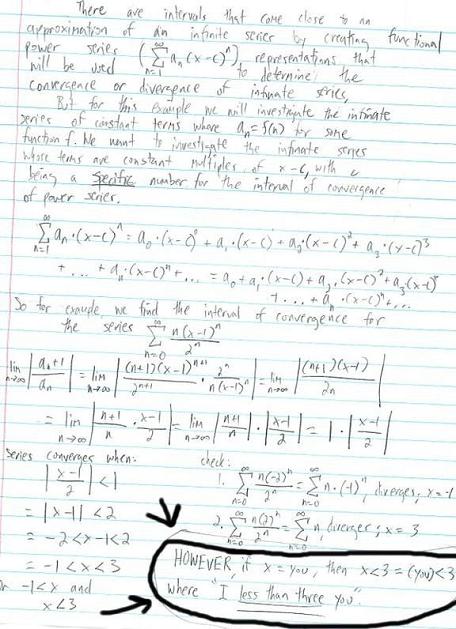 There are intervals that come close to an
approximation of an infinite series by creating functional
power series (∞Σn=1 aₙ(x-c)ⁿ) representations, that
will be used to determine the
convergence or divergence of infinate series,
But for this example we will investigate the infinate
series of constant terms where aₙ=f(n) for some
function f. We want to investigate the infinate series
whose terms are constant multiples of x-c, with c
being a specific number for the interval of convergence
of power series.
∞Σn=1 aₙ·(x-c)ⁿ = a₀·(x-c)⁰ + a₁·(x-c) + a₂·(x-c)² + a₃·(x-c)³
+ ... + aₙ·(x-c)ⁿ + ... = a₀ + a₁·(x-c) + a₂·(x-c)² + a₃(x-c)³
+ ... + aₙ·(x-c)ⁿ + ...
So for example, we find the interval of convergence for
the series ∞Σn=0 n(x-1)ⁿ/2ⁿ
lim n→∞ |aₙ+1/aₙ| = lim n→∞ |(n+1)(x-1)ⁿ⁺¹/2ⁿ⁺¹ · 2ⁿ/n(x-1)ⁿ| = lim n→∞ |(n+1)(x-1)/2n|
= lim n→∞ |n+1/n · x-1/2| = lim n→∞ |n+1/n| · |x-1/2| = 1 · |x-1/2|
Series converges when:
|x-1/2| < 1
= |x-1| < 2
= -2<x-1<2
= -1<x<3
or -1<x and
x<3
check:
1. ∞Σn=0 n(-2)ⁿ/2ⁿ = ∞Σn=0 n·(-1)ⁿ, diverges; x=-1
2. ∞Σn=0 n(2)ⁿ/2ⁿ = ∞Σn=0 n, diverges; x=3
HOWEVER, if x = you, then x<3 = (you)<3
where "I less than three you".